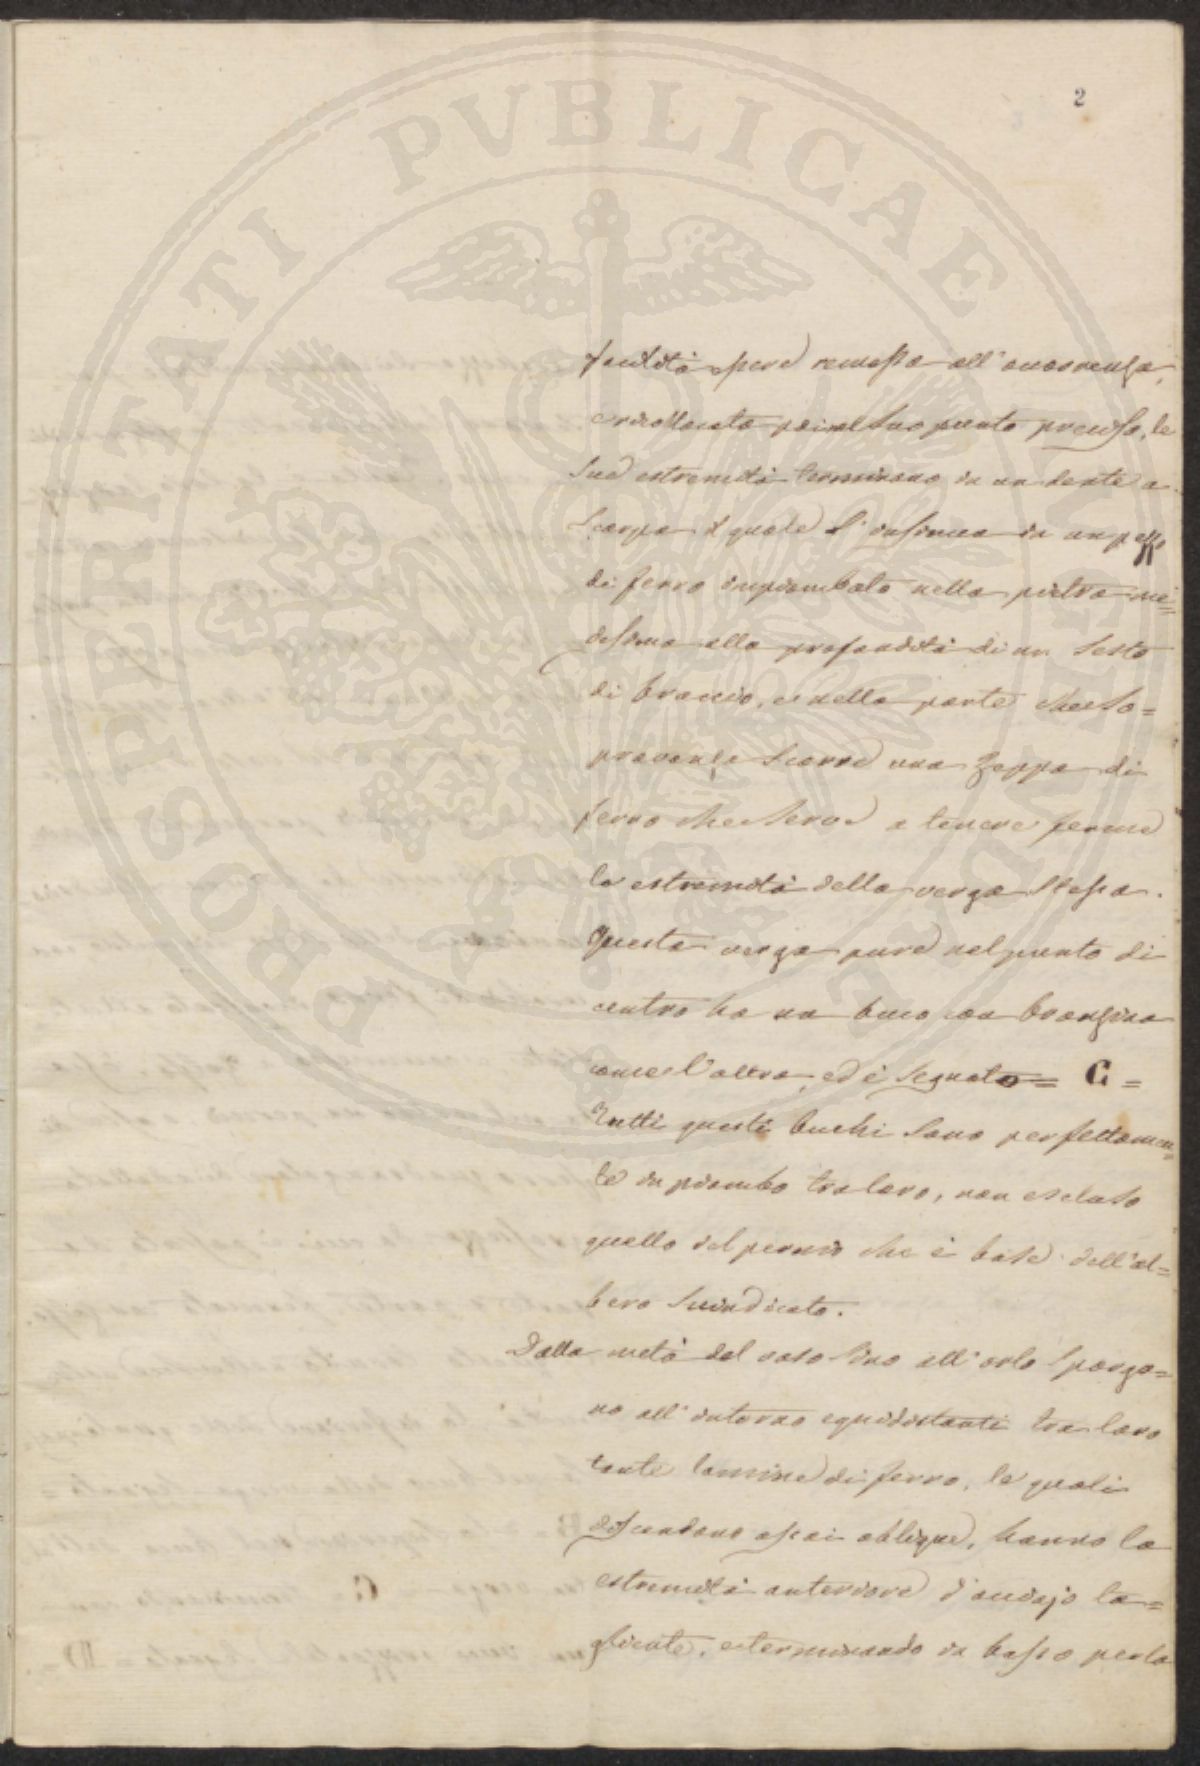 2
PROSPERITATI PUBLICAE AUGENDAE
facilità essere remossa all'occorrenza,
e ricollocata poi nel suo punto preciso, le
sue estremità terminano in un dente a
scarpa il quale s'insinua in un pezzo
di ferro impiombato nella pietra me=
desima alla profondità di un sesto
di braccio, e nella parte che so=
pravanza scorre una zeppa di
ferro che serve a tenere ferme
le estremità della verga stessa.
Questa verga pure nel punto di
centro ha un buco con bronzina
come l'altra, ed è segnato = G =
Tutti questi buchi sono perfettamen=
te in piombo tra loro, non escluso
quello del pernio che è base dell'al=
bero suindicato.
Dalla metà del vaso sino all'orlo sporgo=
no all'intorno equidistanti tra loro
tante lamine di ferro, le quali
discendono assai oblique, hanno la
estremità anteriore d'acciajo ta=
gliente, e terminando in basso per la